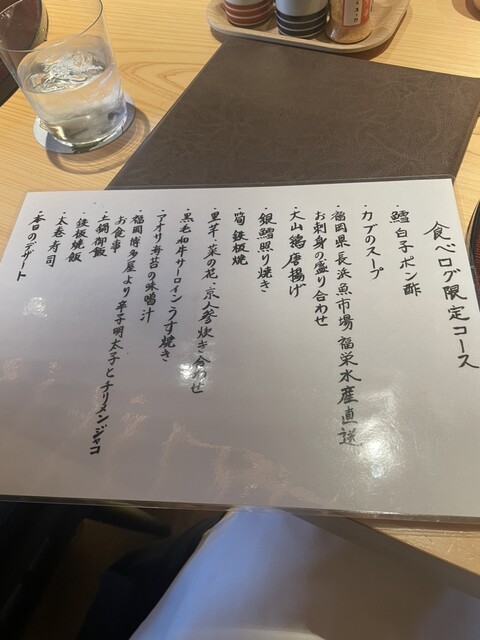 食べログ限定コース
・鱈白子ポン酢
・カブのスープ
・福岡県長浜魚市場 福栄水産直送
お刺身の盛り合わせ
・大山鶏唐揚げ
・銀鱈照り焼き
・筍鉄板焼
・里芋・菜の花・京人参炊き合わせ
・黒毛和牛サーロインうす焼き
・アオリ海苔の味噌汁
・福岡博多屋より辛子明太子とチリメンジャコ
お食事
土鍋御飯
鉄板焼飯
・太巻寿司
・本日のデザート